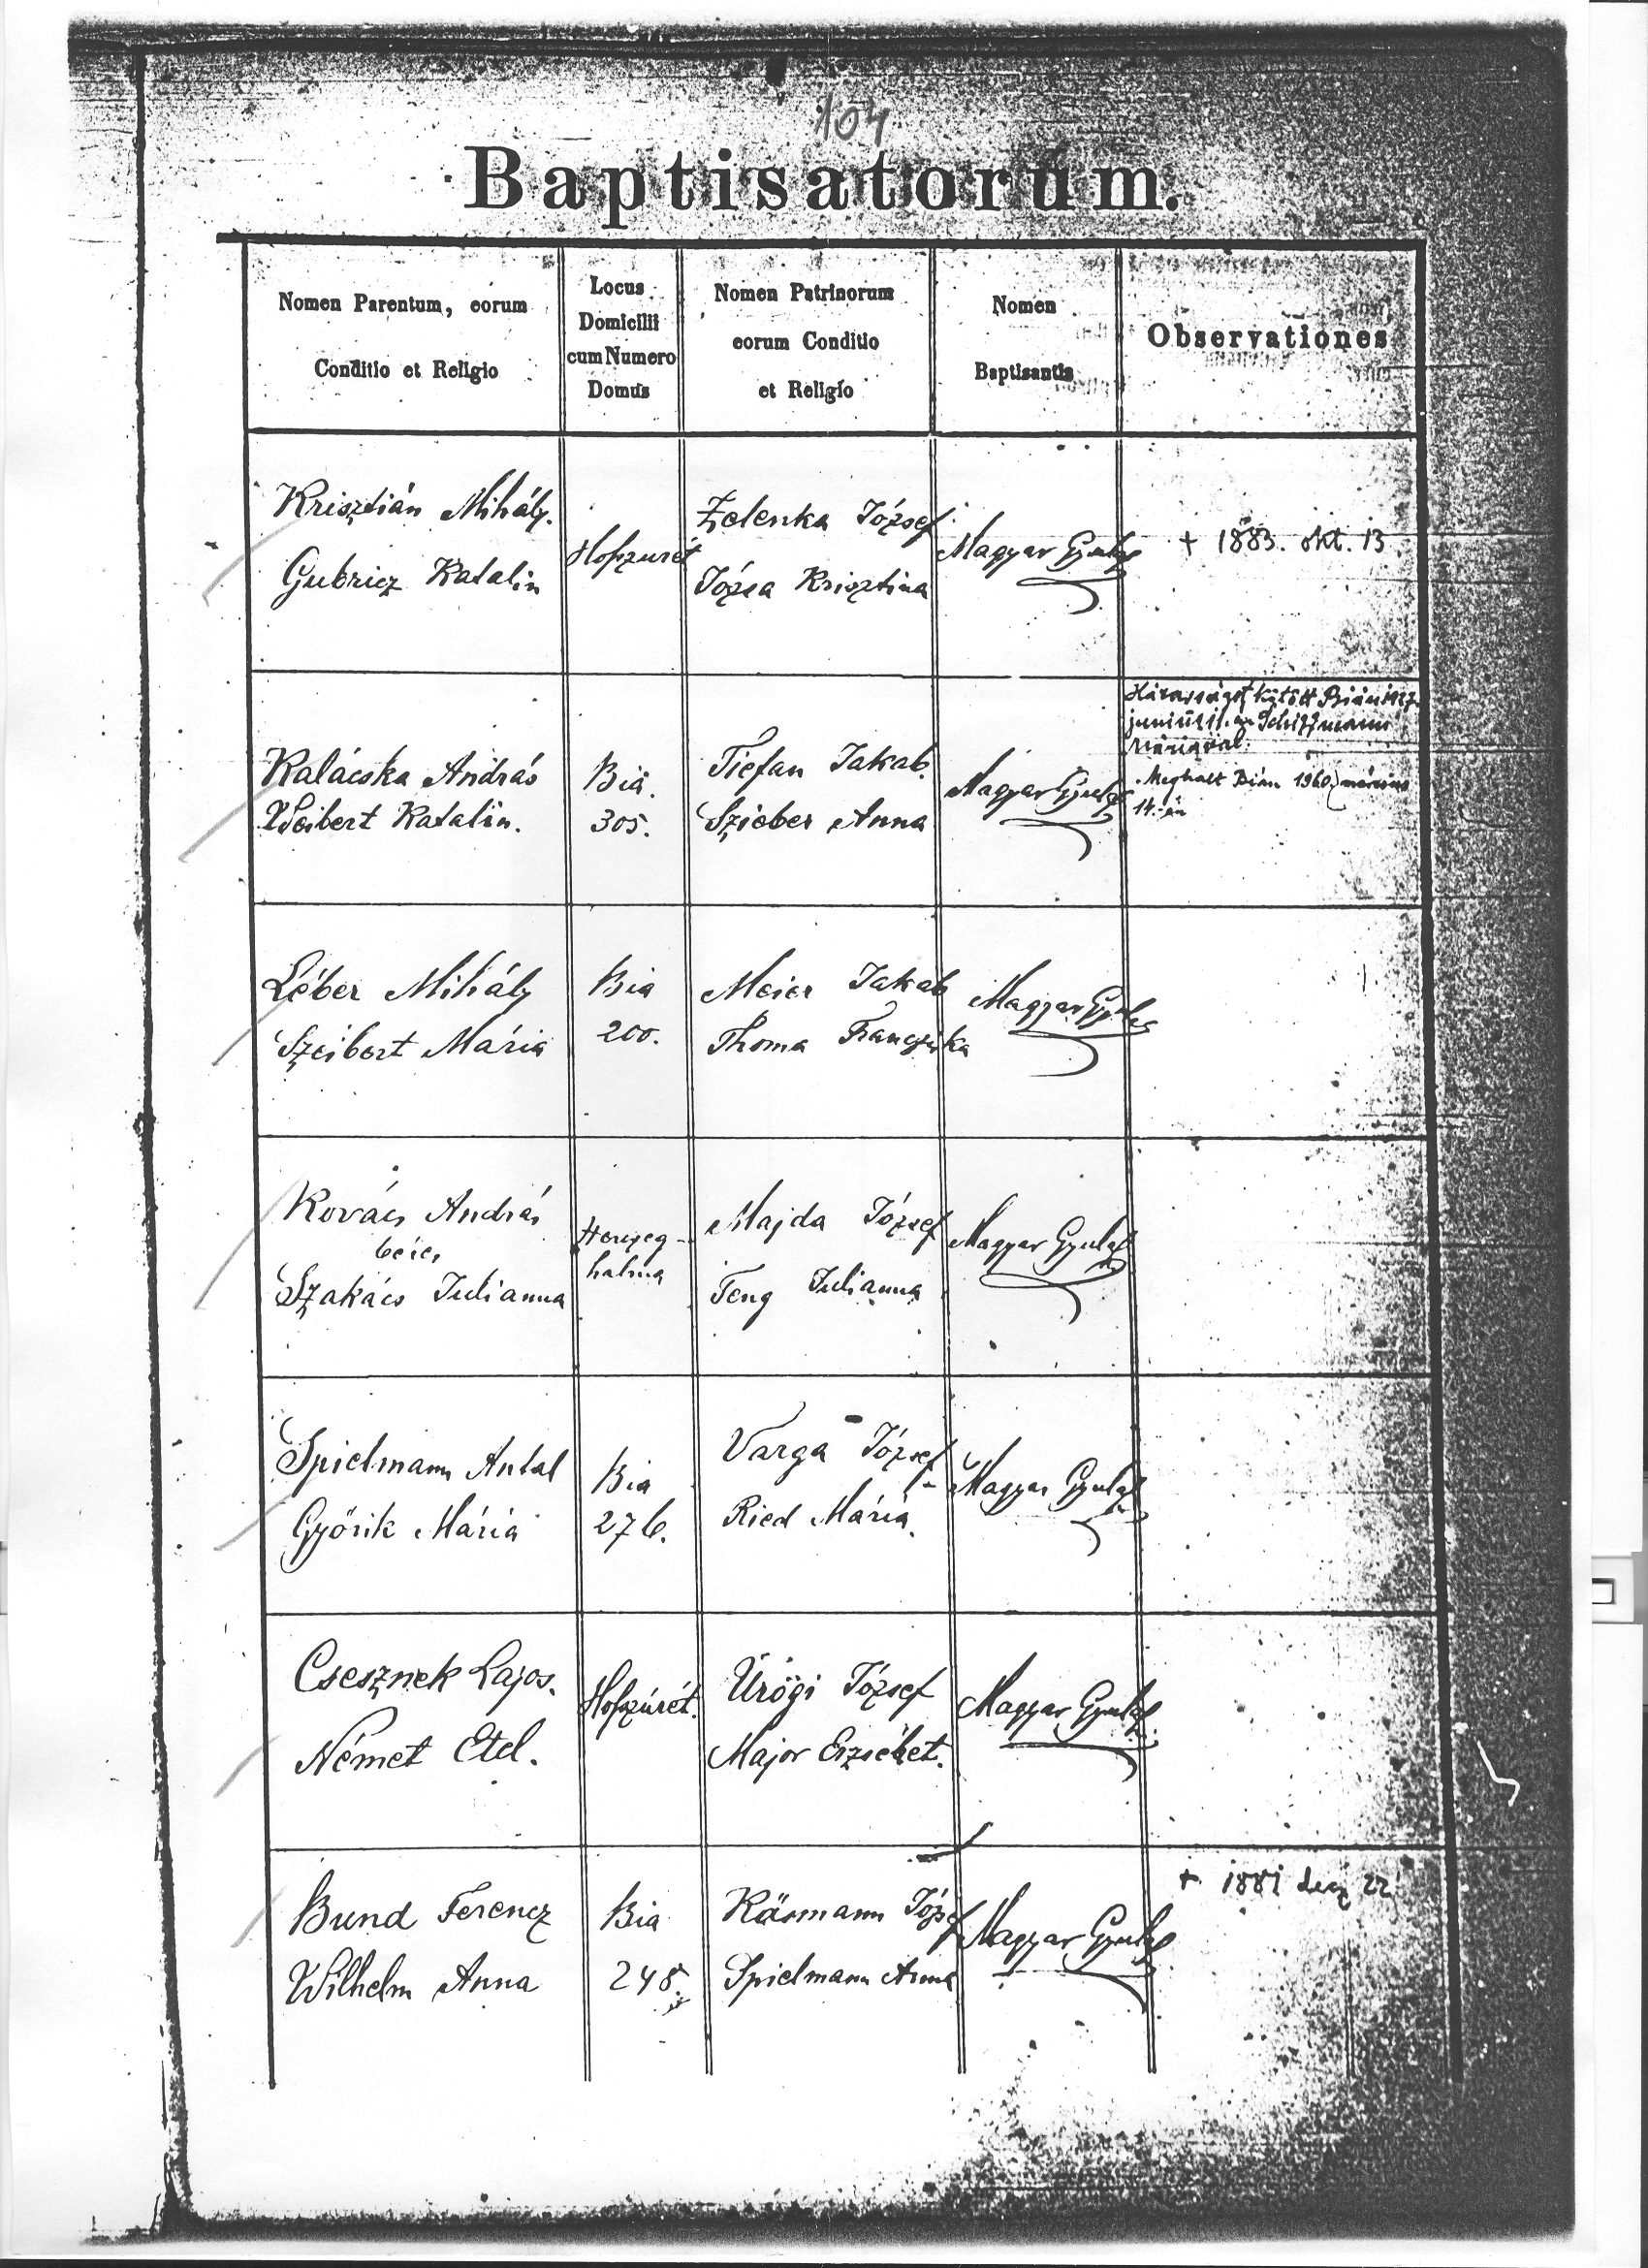 104
Baptisatorum.
Nomen Parentum, eorum
Conditio et Religio
Locus
Domicilii
cum Numero
Domus
Nomen Patrinorum
eorum Conditio
et Religio
Nomen
Baptisantis
Observationes
Krisztián Mihály.
Gubricz Katalin
Hofzurét
Zelenka József
Józsa Krisztina
Magyar Gyula
+ 1883. okt. 13.
Kalácska András
Seibert Katalin.
Bia.
305.
Tiefan Jakab.
Szieber Anna
Magyar Gyula
Házasságot kötött Bián
junius 11.-én Schiffmann
Máriával.
Meghalt Bián 1960 március
14.-én
Léber Mihály
Szeibert Mária
Bia
200.
Meier Jakab
Thoma Franciska
Magyar Gyula
Kovács András
béres
Szakács Julianna
Herczeg-
halma
Majda József
Feng Julianna
Magyar Gyula
Spielmann Antal
Győrik Mária
Bia
276.
Varga József
Ried Mária.
Magyar Gyula
Csesznek Lajos.
Német Etel.
Hofzúrét.
Ürögi József
Major Erzsébet.
Magyar Gyula
Bund Ferencz
Wilhelm Anna
Bia
248.
Käsmann József
Spielmann Anna
Magyar Gyula
+ 1881 dez 22